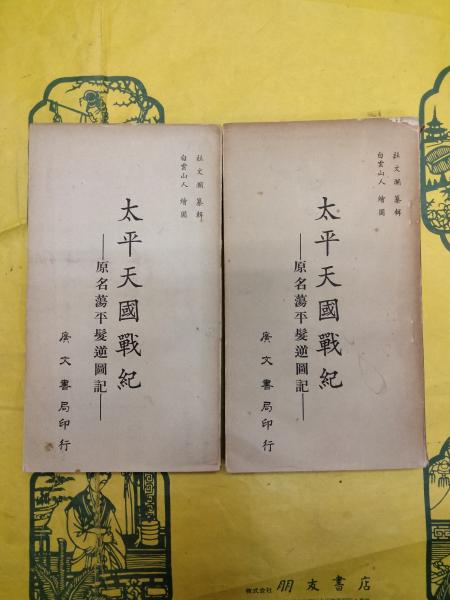 杜文瀾 纂輯
白雲山人 繪圖
太平天國戰紀
——原名蕩平髮逆圖記——
廣文書局印行
杜文瀾 纂輯
白雲山人 繪圖
太平天國戰紀
——原名蕩平髮逆圖記——
廣文書局印行
株式会社 朋友書店